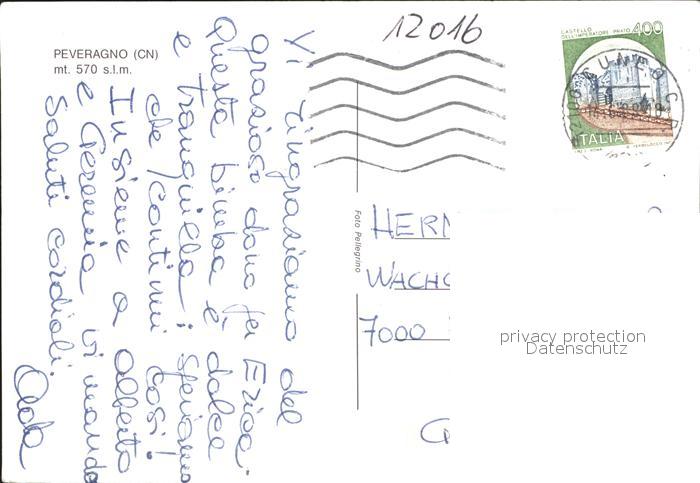 12016
PEVERAGNO (CN)
mt. 570 s.l.m.
CASTELLO
DELL'IMPERATORE PRATO 400
CUNEO
ITALIA
Vi ringraziamo del
grazioso dono per Erica.
Questa bimba è dolce
e tranquilla: speriamo
che continui così!
Insieme a Alberto
e Geremia vi mando
Saluti cordiali.
Alda
Foto Pellegrino
HER
WACHO
7000
privacy protection
Datenschutz